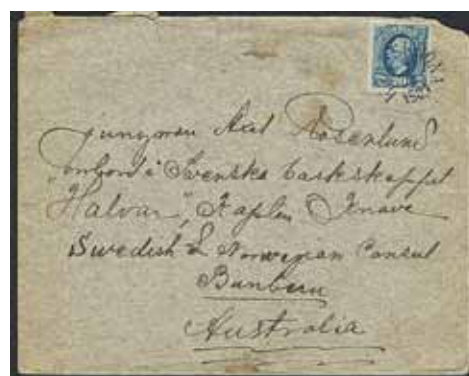 jungman Axel Rosenlund
ombord å Svenska barkskeppet
"Halvar", Kapten
Swedish & Norwegian Consul
Bunbery
Australia